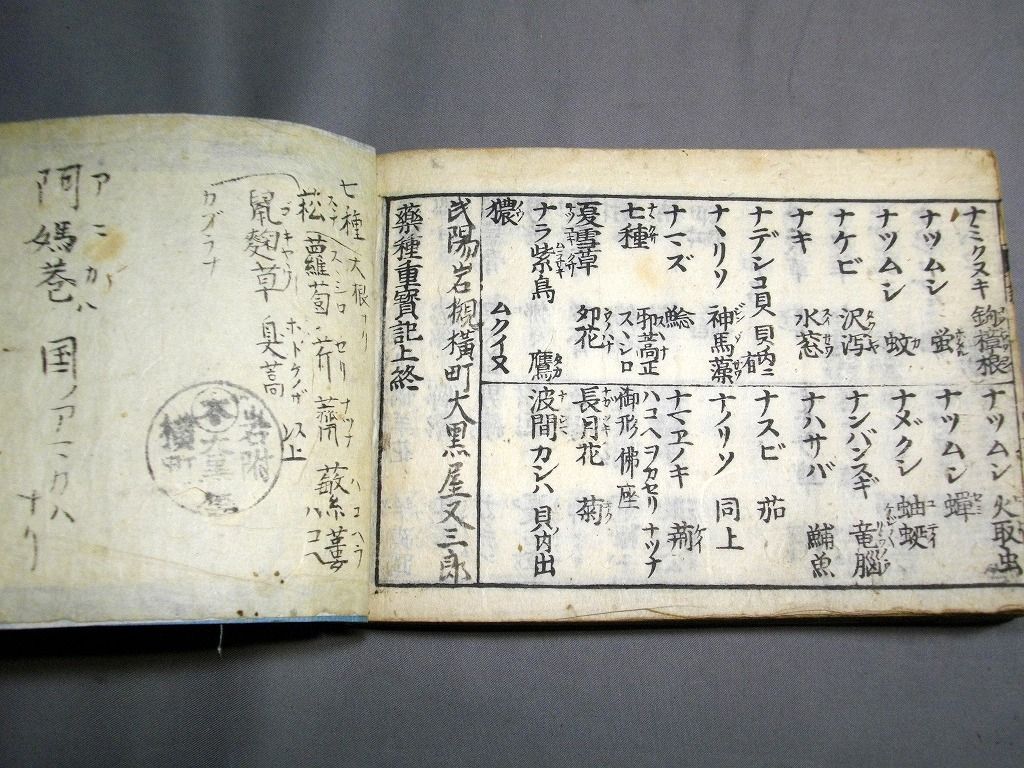 ナミクヌキ 鉤樟根
ナツムシ 蛍
ナツムシ 蚊
ナケビ 沢瀉
ナキ 水葱
ナデシコ貝 貝内ニ有
ナヽリソ 神馬藻
ナマズ 鯰
七種 邪蒿正 スヽシロ
夏雪草 卯花
ナラ紫鳥 鷹
獽 ムクイヌ
ナツムシ 火取虫
ナツムシ 蟬
ナメクシ 蚰蜒
ナンバンスギ 竜脳
ナハサバ 鯆魚
ナスビ 茄
ナノリソ 同上
ナマヱノキ
ハコヘヲカセリ ナツナ
御形佛座
長月花 菊
波間カシハ 貝内出
武陽岩槻横町大黒屋又三郎
藥種重寳記上終
七種 大根ナリ
スヽシロ セリ ナツナ ハコヘラ
菘 蘿蔔 芹 薺 蘩蔞
ゴキヤウ ホトケノザ ハコヘ
鼠麴草 臭蒿
カヅラナ
岩附
本大黒屋
横町
アマガハ
阿媽巷 国ノアマカハ
ナリ